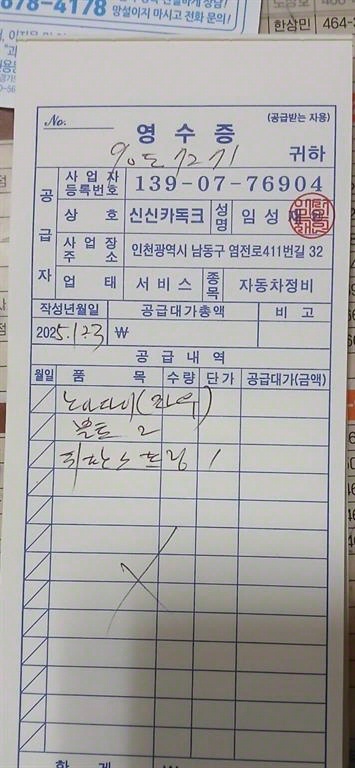 878-4178
망설이지 마시고 전화 문의!
한상민 464-3
No.
(공급받는 자용)
영 수 증
귀하
공급자
사업자등록번호 139-07-76904
상 호 신신카독크 성명 임 성
사업장주소 인천광역시 남동구 염전로411번길 32
업 태 서 비 스 종목 자동차정비
작성년월일 공급대가총액 비 고
2025.1.23 ₩
공 급 내 역
월일 품 목 수량 단가 공급대가(금액)
볼트 2
스프링 1
합 계 ₩